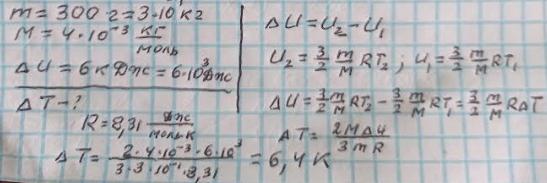 m = 300 г = 3·10 кг
M = 4·10⁻³ кг/моль
ΔU = 6 кДж = 6·10³ Дж
ΔT - ?
R = 8,31 Дж/моль·К
ΔU = U₂ - U₁
U₂ = 3/2 m/M RT₂ ; U₁ = 3/2 m/M RT₁
ΔU = 3/2 m/M RT₂ - 3/2 m/M RT₁ = 3/2 m/M RΔT
ΔT = 2MΔU / 3mR
ΔT = 2·4·10⁻³·6·10³ / 3·3·10⁻¹·8,31 = 6,4 К